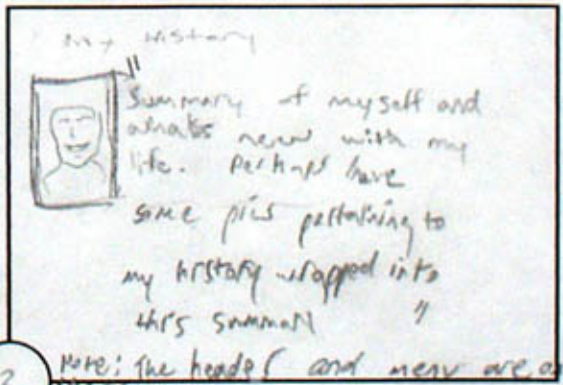 My History
"
Summary of myself and
whats new with my
life. Perhaps have
some pics pertaining to
my history wrapped into
this summary "
2
Note: The header and menu are